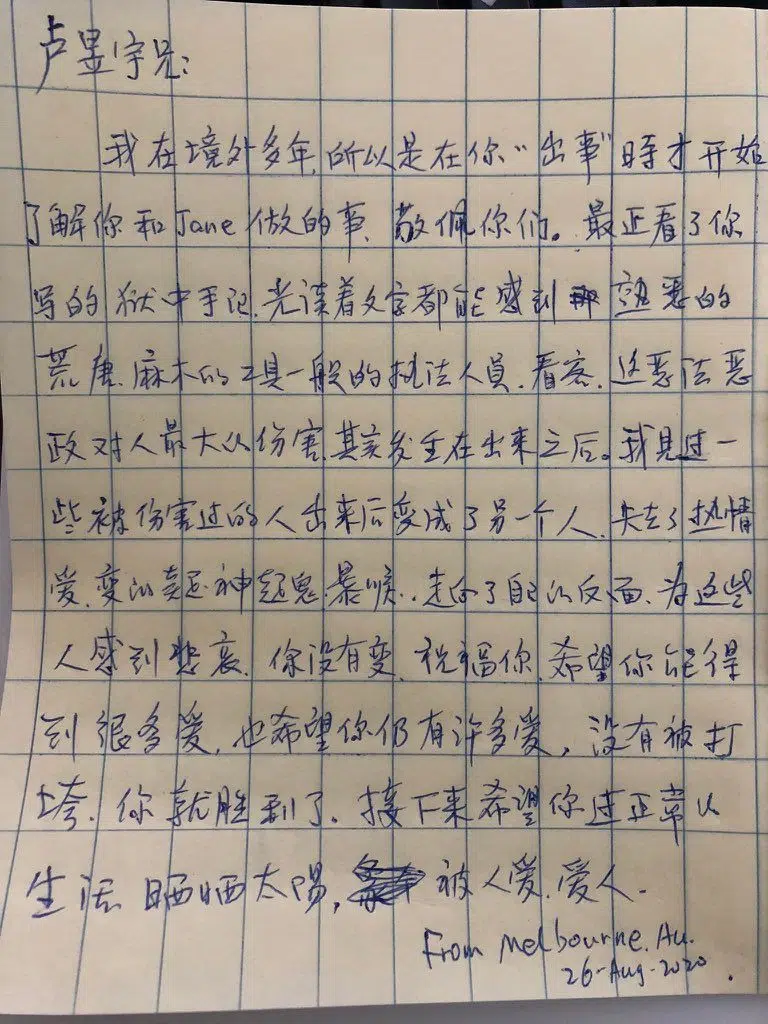 卢昱宇兄:
我在境外多年,所以是在你“出事”時才开始
了解你和Jane做的事、敬佩你们。最近看了你
写的狱中手记.光读着文字都能感到熟悉的
荒唐、麻木的工具一般的执法人员、看客.这恶法恶
政对人最大的伤害,其实发生在出来之后。我见过一
些被伤害过的人出来后变成了另一个人、失去了热情
爱、变的神起鬼、暴戾..走向了自己的反面、为这些
人感到悲哀、你没有变、祝福你、希望你能得
到很多爱,也希望你仍有许多爱,没有被打
垮、你就胜利了、接下来希望你过正常的
生活 晒晒太陽, 被人爱、爱人.
From Melbourne. Au.
26-Aug-2020.